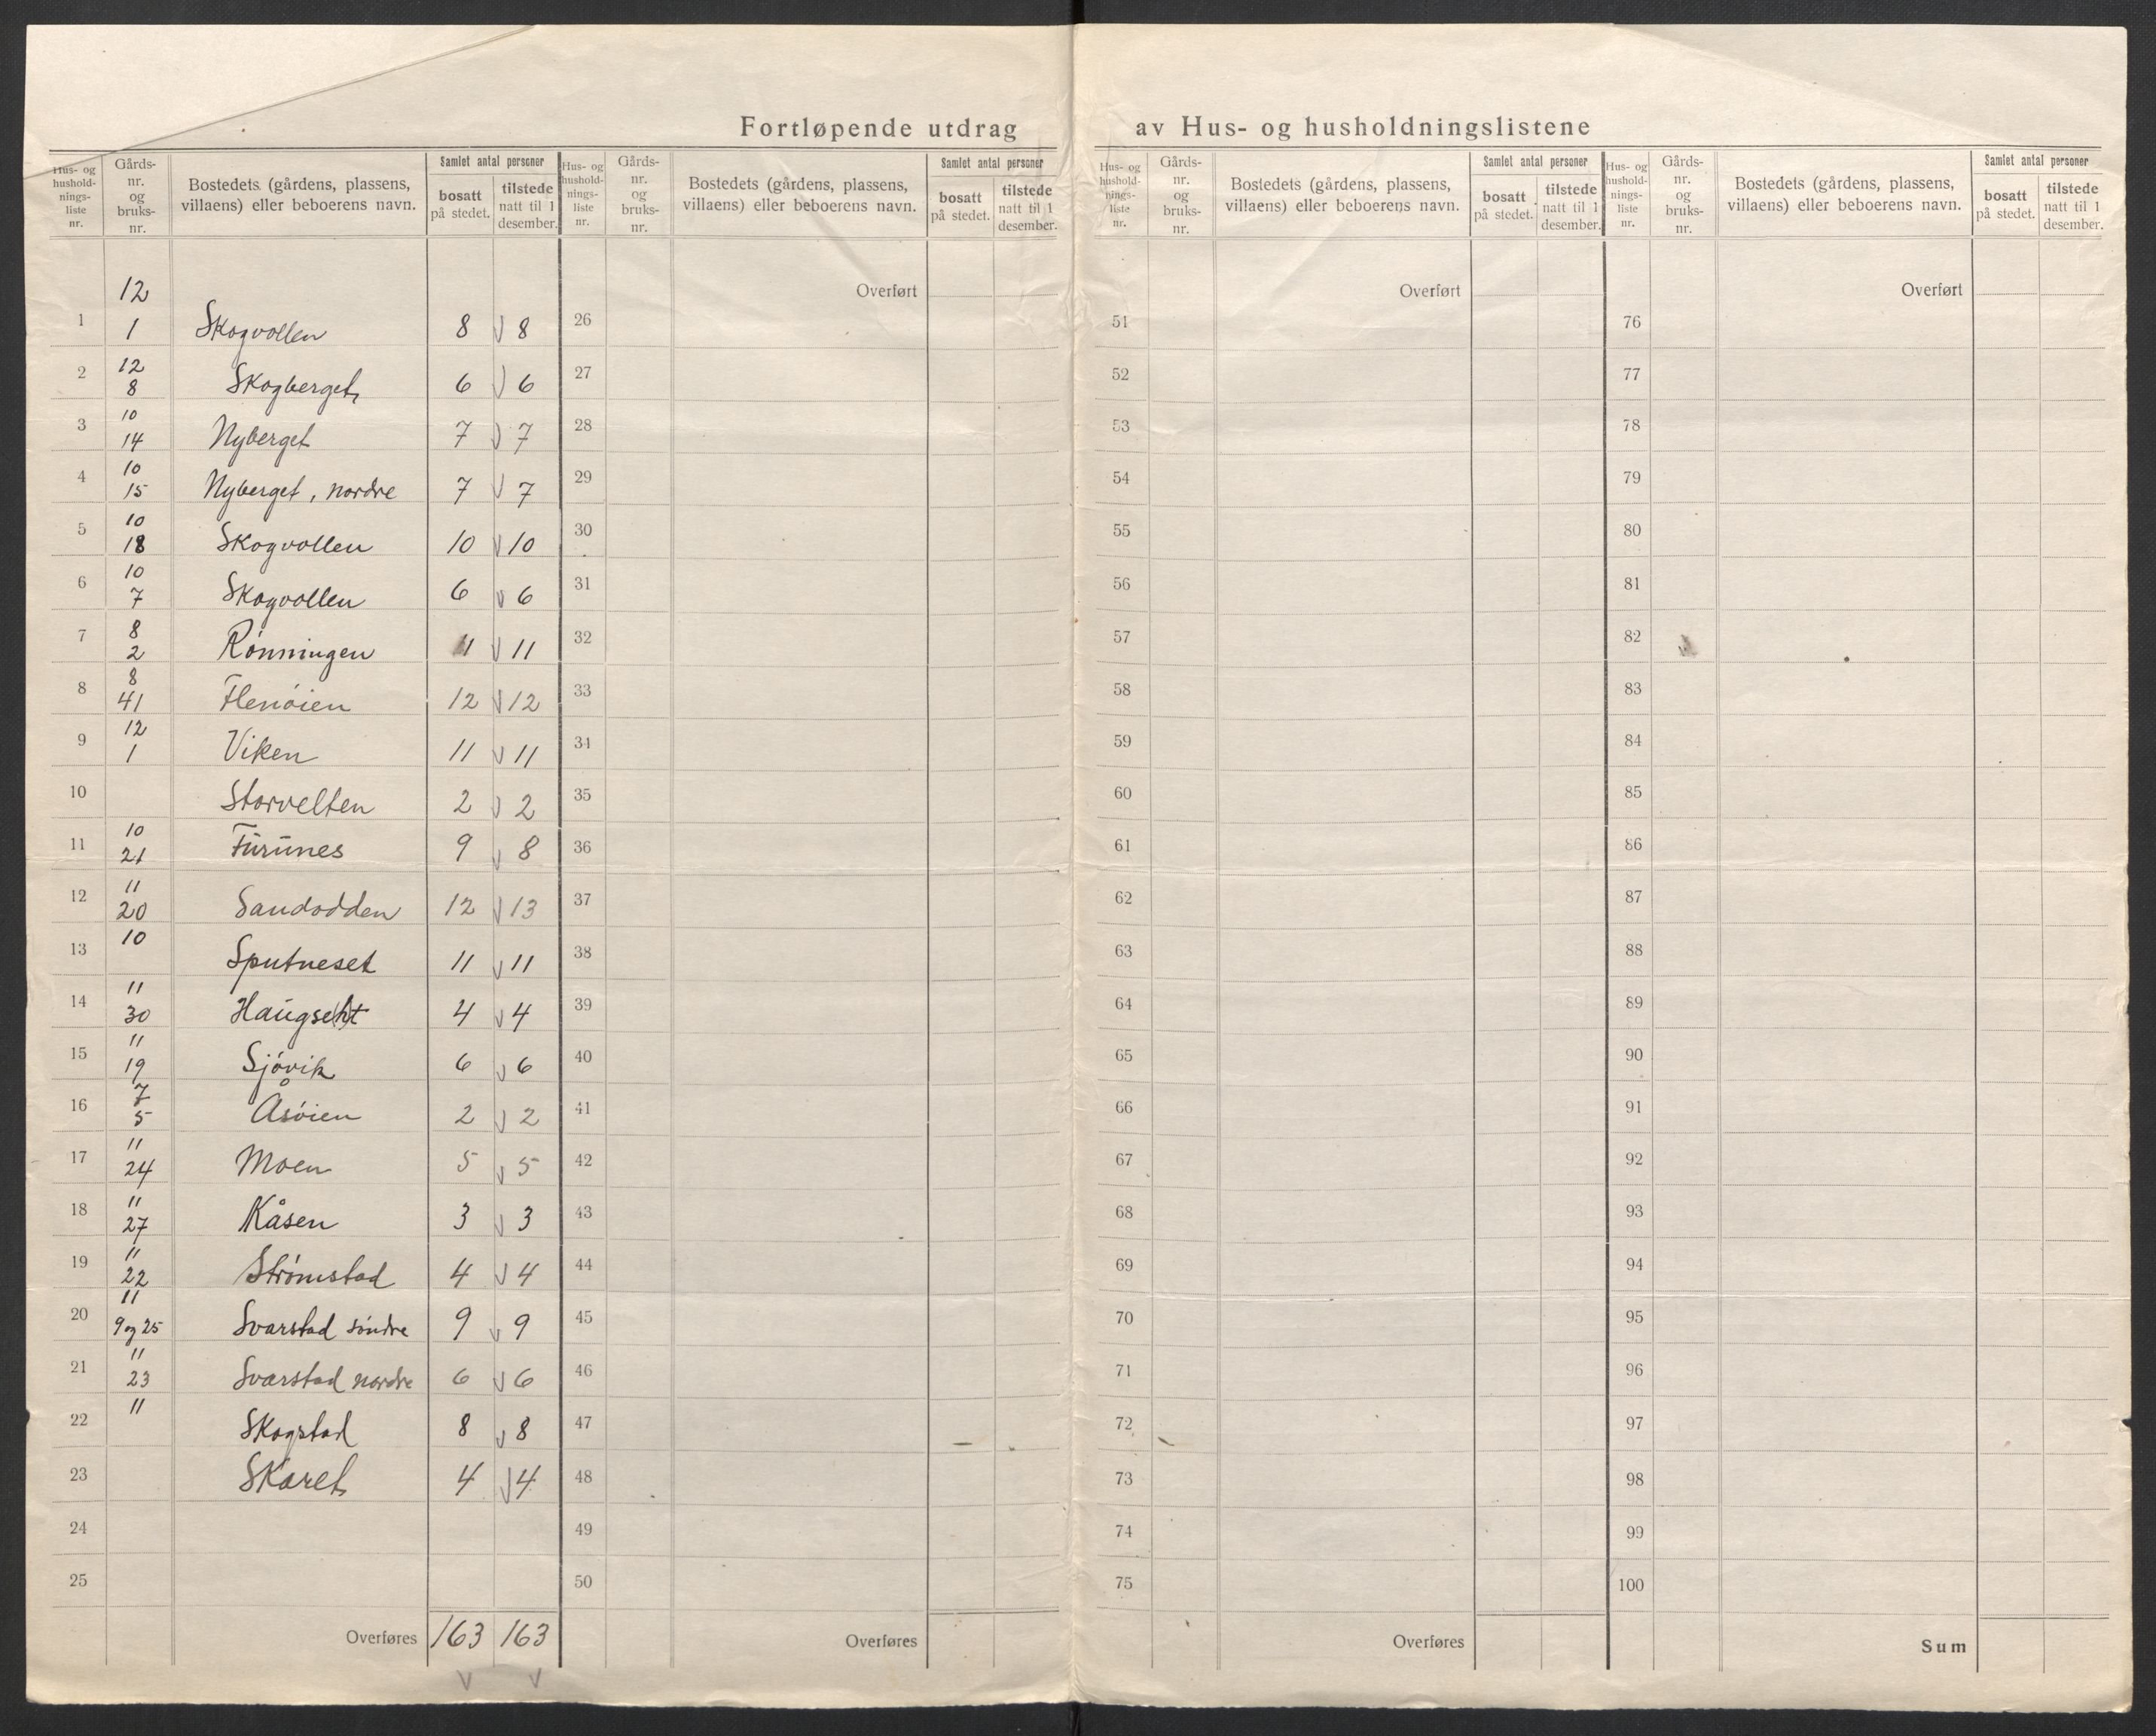 Fortløpende utdrag av Hus- og husholdningslistene
Hus- og hushold-nings-liste nr. Gårds-nr. og bruks-nr. Bostedets (gårdens, plassens, villaens) eller beboerens navn. Samlet antal personer bosatt på stedet. tilstede natt til 1 desember.
Hus- og hushold-nings-liste nr. Gårds-nr. og bruks-nr. Bostedets (gårdens, plassens, villaens) eller beboerens navn. Samlet antal personer bosatt på stedet. tilstede natt til 1 desember.
Hus- og hushold-nings-liste nr. Gårds-nr. og bruks-nr. Bostedets (gårdens, plassens, villaens) eller beboerens navn. Samlet antal personer bosatt på stedet. tilstede natt til 1 desember.
Hus- og hushold-nings-liste nr. Gårds-nr. og bruks-nr. Bostedets (gårdens, plassens, villaens) eller beboerens navn. Samlet antal personer bosatt på stedet. tilstede natt til 1 desember.
1 12 1 Skogvollen 8 8
2 12 8 Skogberget 6 6
3 10 14 Nyberget 7 7
4 10 15 Nyberget, nordre 7 7
5 10 18 Skogvollen 10 10
6 10 7 Skogvollen 6 6
7 8 2 Rønningen 11 11
8 8 41 Flenøien 12 12
9 12 1 Viken 11 11
10 Storvelten 2 2
11 10 21 Furunes 9 8
12 11 20 Sandodden 12 13
13 10 Sputneset 11 11
14 11 30 Haugseht 4 4
15 11 19 Sjøvik 6 6
16 7 5 Åsøien 2 2
17 11 24 Moen 5 5
18 11 27 Kåsen 3 3
19 11 22 Strømstad 4 4
20 11 9 og 25 Svarstad søndre 9 9
21 11 23 Svarstad nordre 6 6
22 11 Skogstad 8 8
23 Skaret 4 4
24
25
Overføres 163 163
Overført
26
27
28
29
30
31
32
33
34
35
36
37
38
39
40
41
42
43
44
45
46
47
48
49
50
Overføres
Overført
51
52
53
54
55
56
57
58
59
60
61
62
63
64
65
66
67
68
69
70
71
72
73
74
75
Overføres
Overført
76
77
78
79
80
81
82
83
84
85
86
87
88
89
90
91
92
93
94
95
96
97
98
99
100
Sum